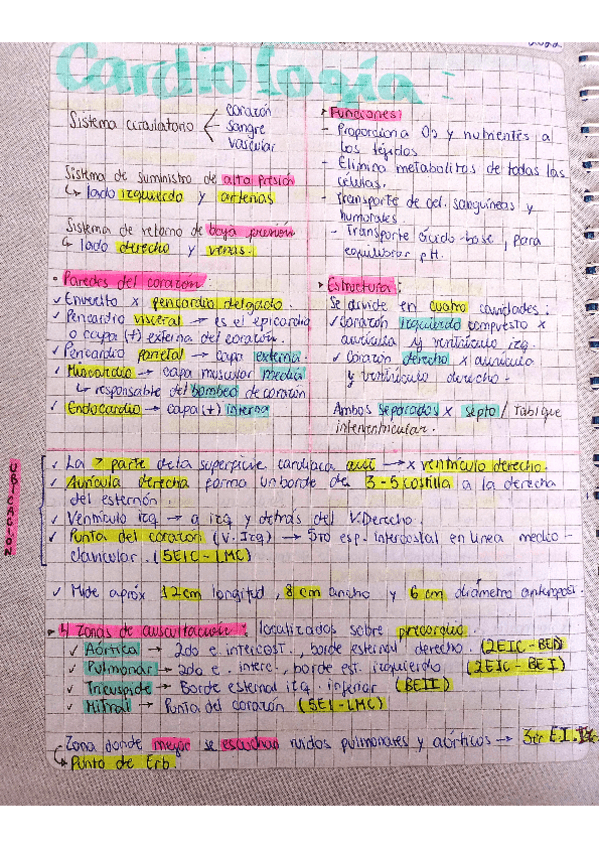 Cardiología:
Sistema circulatorio
corazón
sangre
vascular
Sistema de suministro de alta presión
↳ lado izquierdo y arterias
Sistema de retorno de baja presión
↳ lado derecho y venas.
▸ Funciones:
- Proporciona O2 y nutrientes a
los tejidos
- Elimina metabolitos de todas las
células.
- Transporte de cel. sanguíneas y
humorales
- Transporte ácido-base, para
equilibrar pH.
• Paredes del corazón:
✓ Envuelto x pericardio delgado.
✓ Pericardio visceral → es el epicardio
o capa (+) externa del corazón.
✓ Pericardio parietal → capa externa
✓ Miocardio → capa muscular media
↳ responsable del bombeo de corazón
✓ Endocardio → capa (+) interna
▸ Estructura:
Se divide en cuatro cavidades:
✓ Corazón izquierdo compuesto x
aurícula y ventrículo izq.
✓ Corazón derecho x aurícula
y ventrículo derecho.
Ambos separados x septo / Tabique
interventricular.
UBICACION
✓ La > parte de la superficie cardiaca ant → x ventrículo derecho.
✓ Aurícula derecha forma un borde de 3-5 costilla a la derecha
del esternón.
✓ Ventrículo izq → a izq y detrás del V.Derecho.
✓ Punta del corazón (V. Izq) → 5to esp. Intercostal en línea medio-
clavicular. (5EIC-LMC)
✓ Mide apróx 12cm longitud, 8 cm ancho y 6 cm diámetro anteropost.
▸ 4 Zonas de auscultación: localizados sobre precordio.
✓ Aórtica → 2do e intercost., borde esternal derecho. (2EIC-BED)
✓ Pulmonar → 2do e. interc., borde est. izquierdo (2EIC-BEI)
✓ Tricuspide → Borde esternal izq. inferior (BEII)
✓ Mitral → Punta del corazón (5EI-LMC)
Zona donde mejor se escuchan ruidos pulmonares y aórticos → 3er E.I.
↳ Punto de Erb.